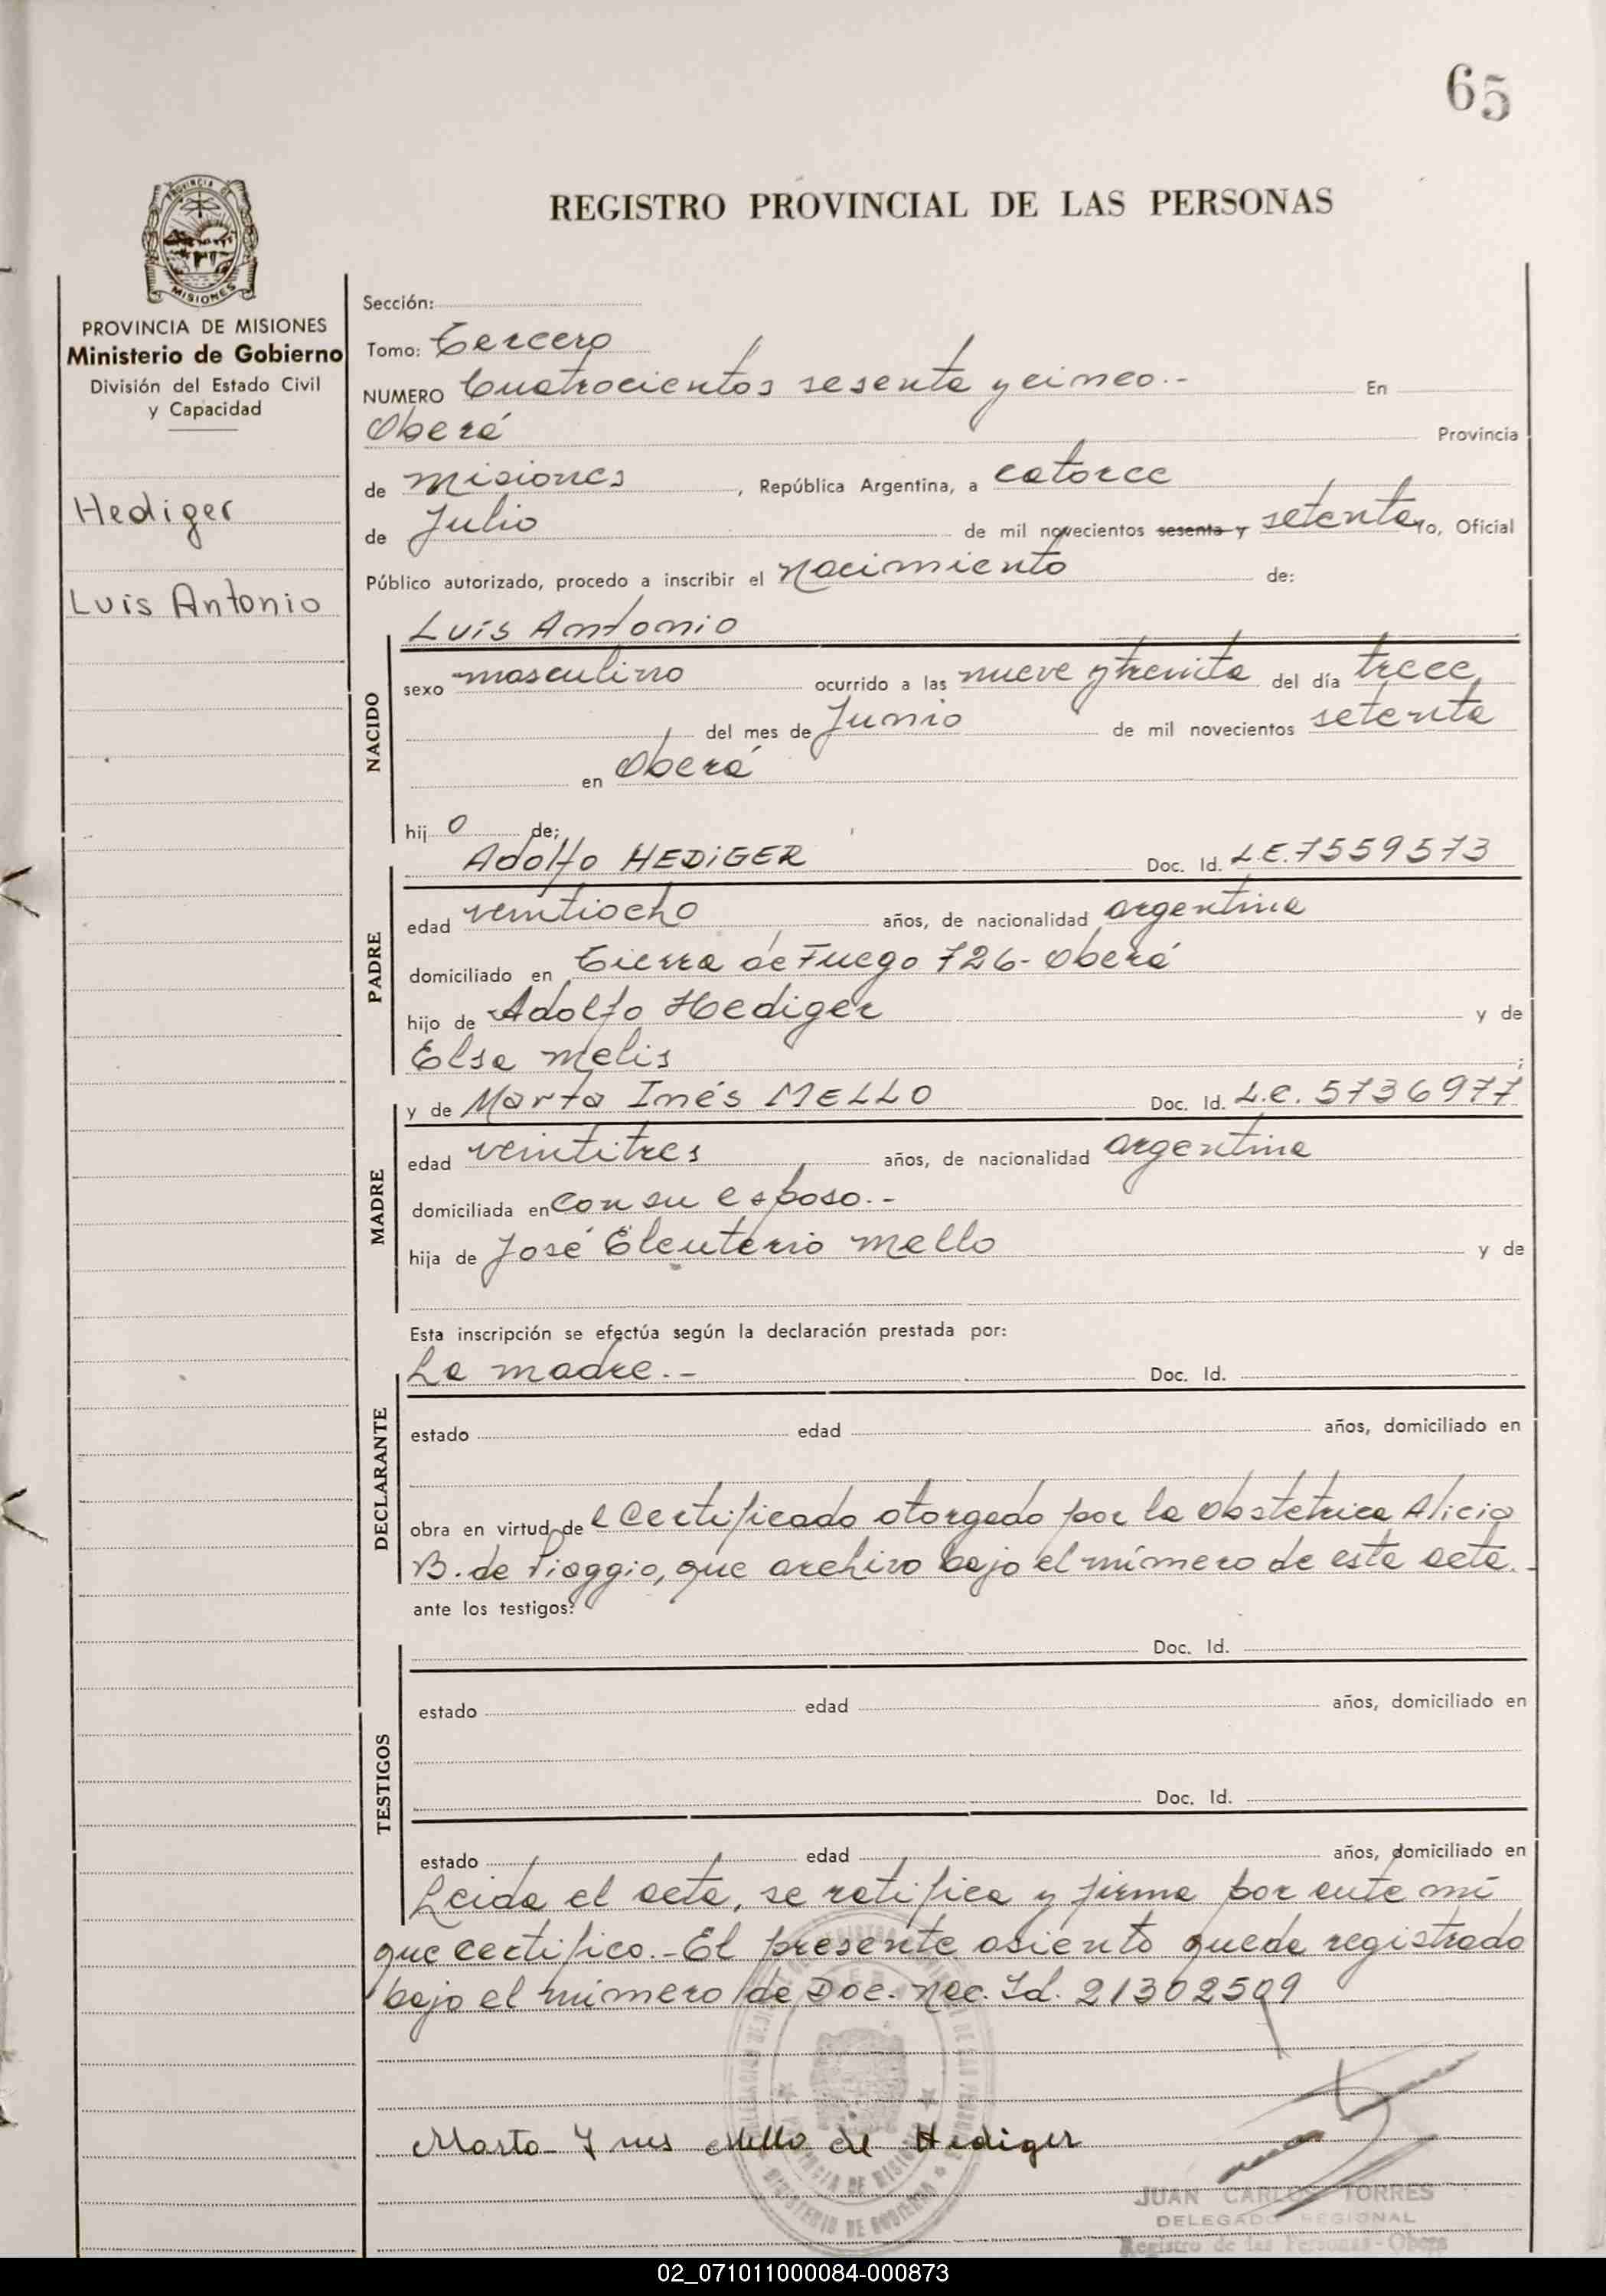 65
REGISTRO PROVINCIAL DE LAS PERSONAS
PROVINCIA DE MISIONES
PROVINCIA DE MISIONES
Ministerio de Gobierno
División del Estado Civil
y Capacidad
Hediger
Luis Antonio
Sección:
Tomo: Tercero
NUMERO Cuatrocientos sesenta y cinco.- En
Oberá Provincia
de Misiones, República Argentina, a catorce
de Julio de mil novecientos sesenta y setenta, Yo, Oficial
Público autorizado, procedo a inscribir el Nacimiento de:
NACIDO
Luis Antonio
sexo masculino ocurrido a las nueve y treinta del día trece
del mes de Junio de mil novecientos setenta
en Oberá
hij o de;
PADRE
Adolfo HEDiGER Doc. Id. L.E. 7559573
edad veintiocho años, de nacionalidad argentina
domiciliado en Tierra de Fuego 726- Oberá
hijo de Adolfo Hediger y de
Elsa Melis ;
MADRE
y de Marta Inés MELLO Doc. Id. L.C. 5736977
edad veintitres años, de nacionalidad argentina
domiciliada en con su esposo.-
hija de José Eleuterio Mello y de
Esta inscripción se efectúa según la declaración prestada por:
DECLARANTE
La madre.- Doc. Id.
estado edad años, domiciliado en
obra en virtud de l Certificado otorgado por la Obstetrica Alicia
B. de Piaggio, que archivo bajo el número de esta acta.-
ante los testigos:
TESTIGOS
Doc. Id.
estado edad años, domiciliado en
Doc. Id.
estado edad años, domiciliado en
Leida el acta, se ratifica y firma por ante mí
que certifico.- El presente asiento queda registrado
bajo el número de Doc. Nac. Id. 21302509
Marta Ynes Mello de Hediger
JUAN CARLOS TORRES
DELEGADO REGIONAL
Registro de las Personas - Obera
02_071011000084-000873